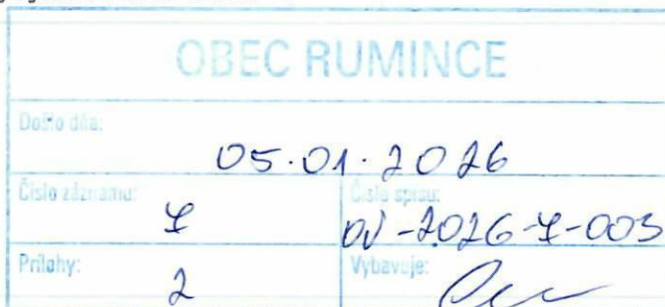 OBEC RUMINCE
Došlo dňa:
05.01.2026
Číslo záznamu: Číslo spisu:
Prílohy: 2 Vybavuje: